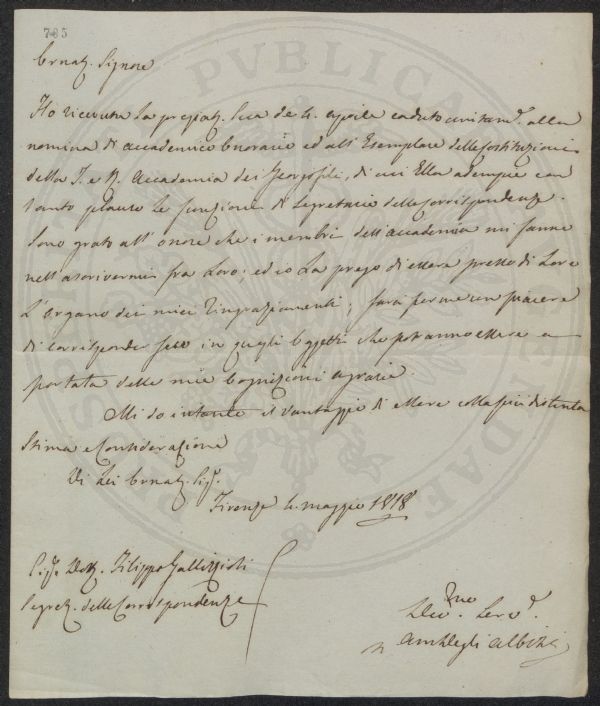 785
Ornat. Signore
Ho ricevuta la pregiat. sua de 4. aprile caduto unitam. alla
nomina di accademico Onorario ed all'Esemplare delle Costituzioni
della I. e R. Accademia dei Georgofili, di cui Ella adempie con
tanto plauso le funzioni di Segretario delle corrispondenze.
Sono grato all'onore che i membri dell'accademia mi fanno
nell'ascrivermi fra Loro; ed io La prego di essere presso di Loro
L'organo dei miei ringraziamenti; sarà per me un piacere
di corrisponder seco in quegli Oggetti che potranno essere a
portata delle mie Cognizioni agrarie.
Mi do intanto il vantaggio di essere colla più distinta
Stima e Considerazione
Di Lei Ornat. Sig.
Firenze 4. maggio 1818
Sig. Dott. Filippo Gallizioli
Segret. delle Corrispondenze
Dev. mo Serv.
degli Albizi
PVBLICAE